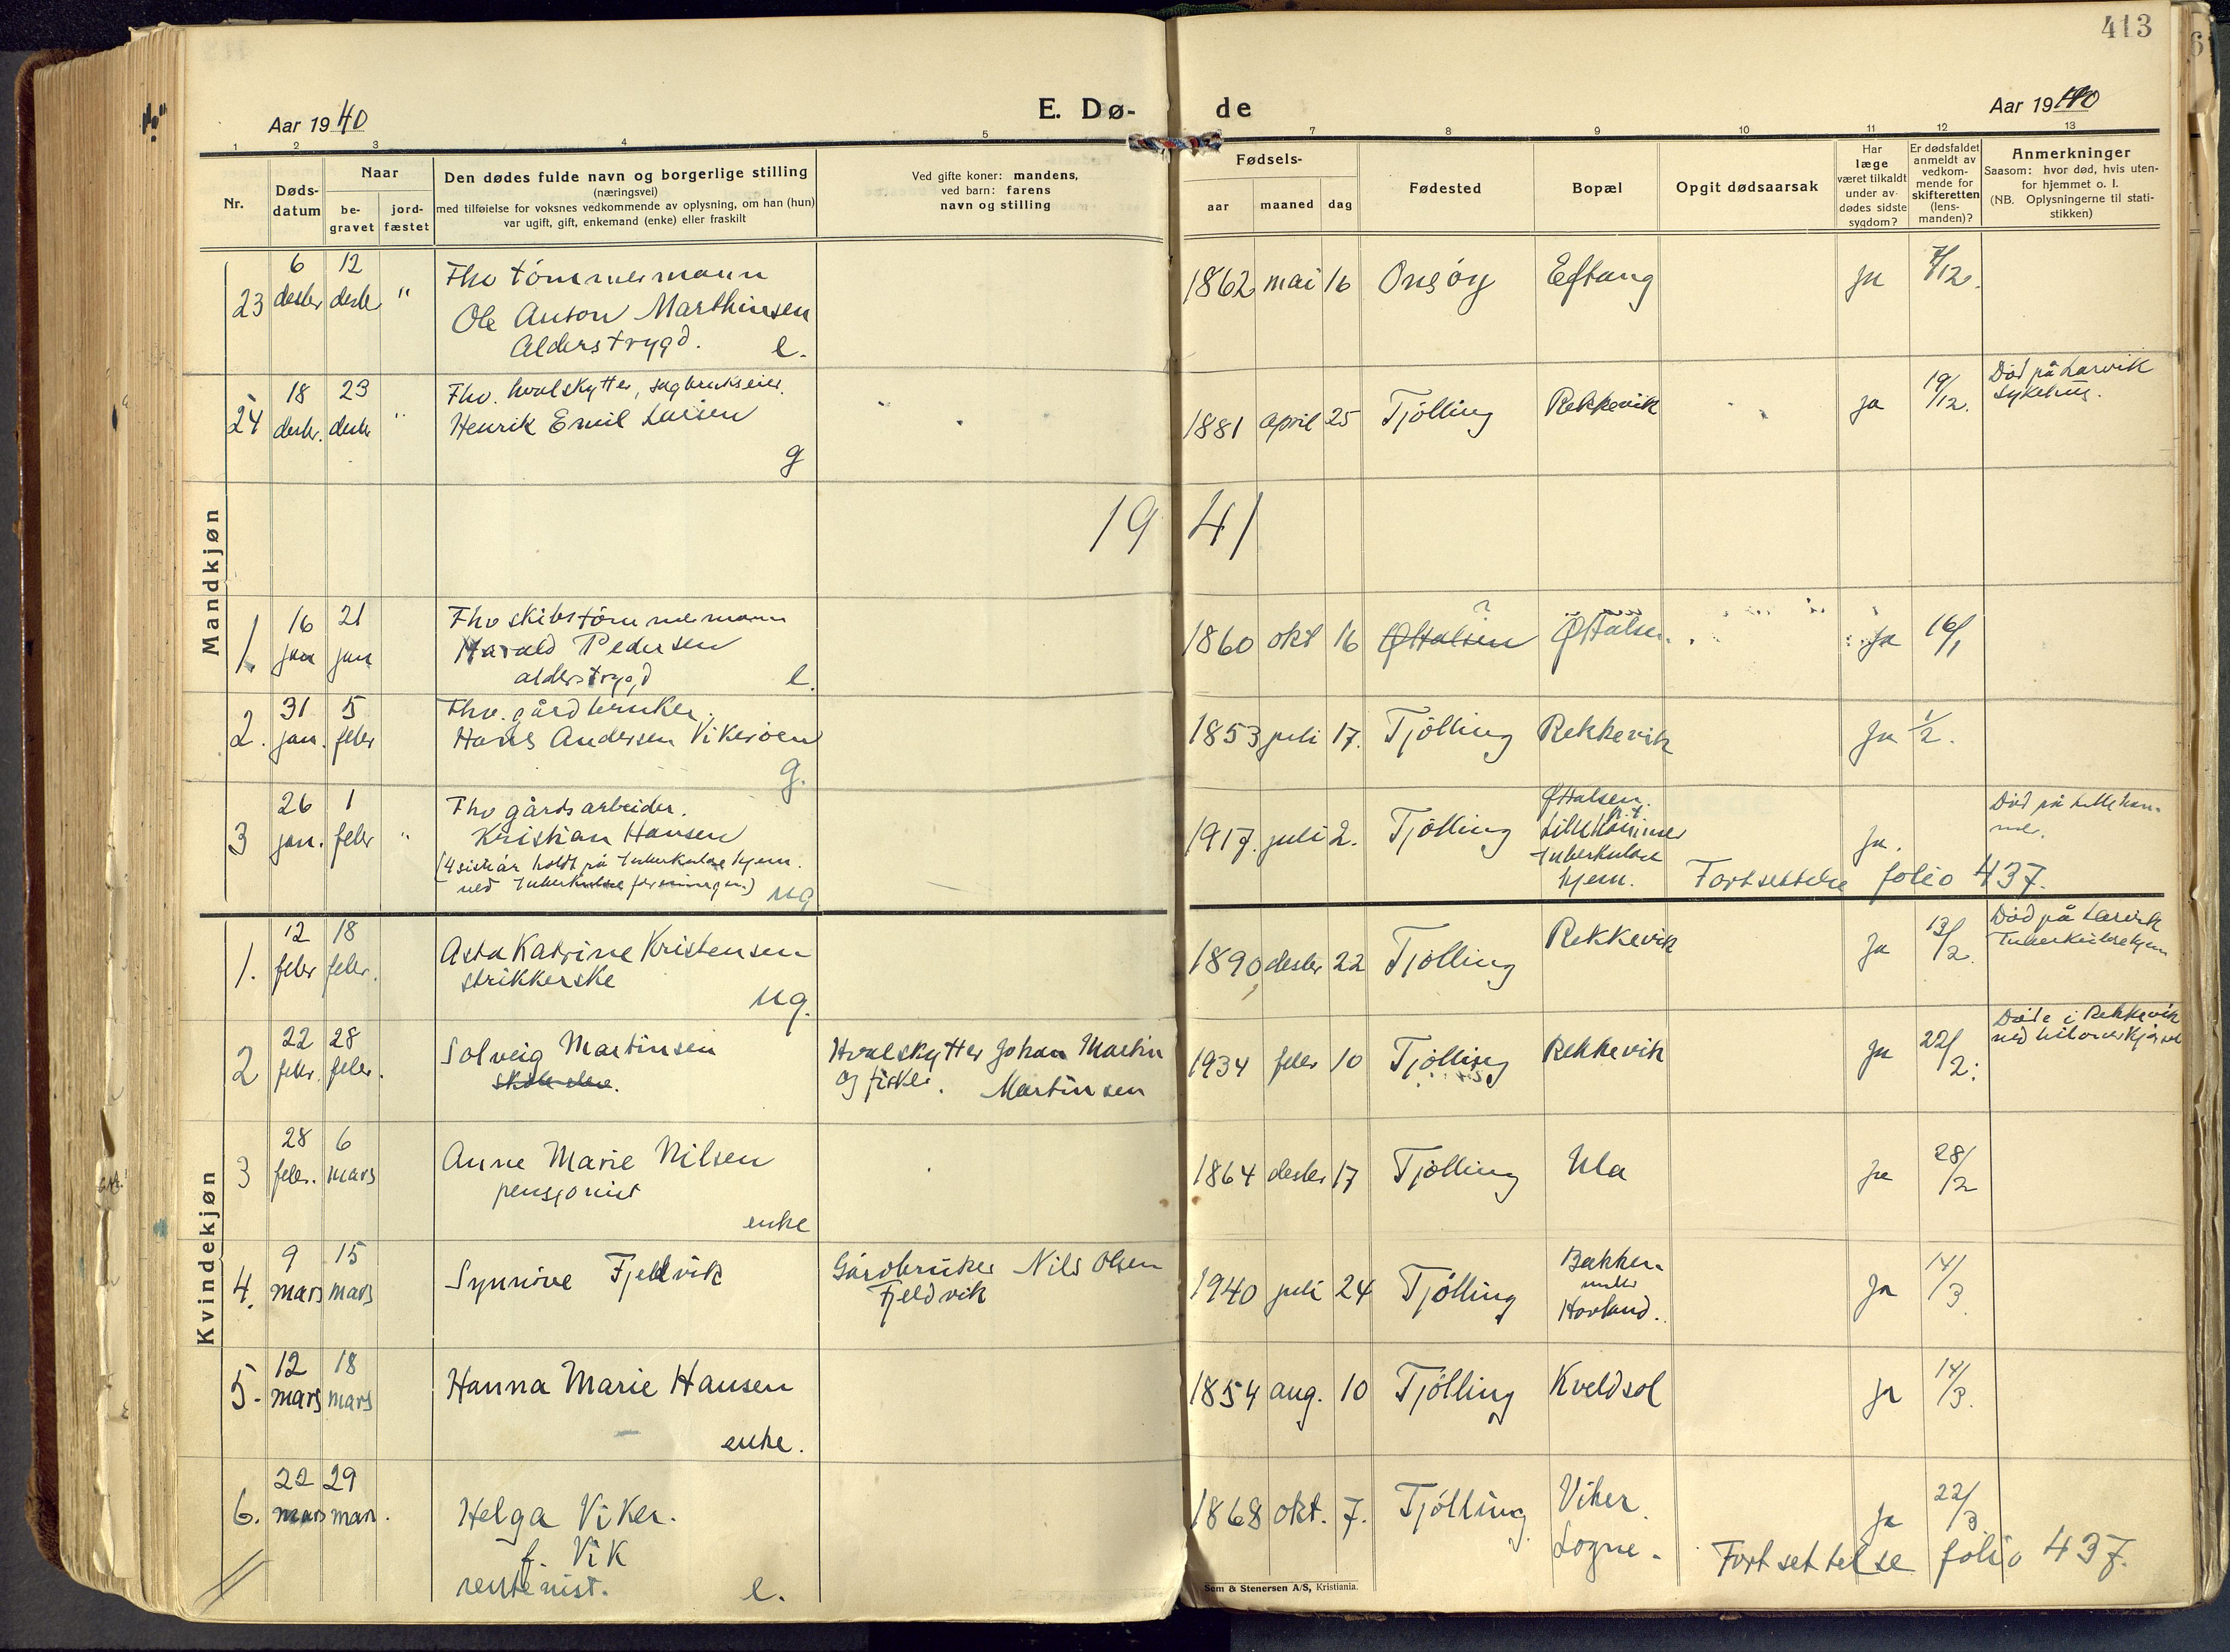 413
Aar 1940
E. Dø-
de
Aar 1940
1 2 3 4 5 6 7 8 9 10 11 12 13
Nr.
Døds-
datum
Naar
be-
gravet
jord-
fæstet
Den dødes fulde navn og borgerlige stilling
(næringsvei)
med tilføielse for voksnes vedkommende av oplysning, om han (hun)
var ugift, gift, enkemand (enke) eller fraskilt
Ved gifte koner: mandens,
ved barn: farens
navn og stilling
Fødsels-
aar maaned dag
Fødested
Bopæl
Opgit dødsaarsak
Har
læge
været tilkaldt
under av-
dødes sidste
sygdom?
Er dødsfaldet
anmeldt av
vedkom-
mende for
skifteretten
(lens-
manden)?
Anmerkninger
Saasom: hvor død, hvis uten-
for hjemmet o. l.
(NB. Oplysningerne til stati-
stikken)
Mandkjøn
23
6 desbr
12 desbr
"
Fhv tömmermann
Ole Anton Marthinsen
Alderstrygd. e.
1862 mai 16 Onsöy Eftang ja 7/12.
24
18 desbr.
23 desbr
"
Fhv. hvalskytter, sagbrukseier.
Henrik Emil Larsen
g
1881 april 25 Tjölling Rekkevik ja 19/12.
Död på Larvik
sykehus.
1941
1.
16 jan
21 jan
Fhv skibstömmermann
Harald Pedersen
alderstrygd e.
1860 okt 16 ØHalsen ? ØHalsen. ja 16/1
2.
31 jan.
5 febr
Fhv. gårdbruker.
Hans Andersen Vikerøen
g.
1853 juli 17. Tjölling Rekkevik ja 1/2.
3
26 jan.
1 febr
"
Fhv gårdsarbeider.
Kristian Hansen
ug
1917. juli 2. Tjölling
ØHalsen.
tuberkulose
hjem.
ja.
Fortsettelse folio 437.
Kvindekjøn
1.
12 febr
18 febr.
Asta Katrine Kristensen
strikkerske
ug.
1890 desbr 22 Tjölling Rekkevik ja 13/2.
Död på Larvik
Tuberkulosehjem
2
22 febr.
28 febr.
Solveig Martinsen
skoleelev.
Hvalskytter Johan Martin
og fisker. Martinsen
1934 febr 10 Tjölling Rekkevik ja 22/2.
Döde i Rekkevik
ved biloverkjörsel
3
28 febr.
6 mars
Anne Marie Nilsen
pensjonist
enke
1864 desbr 17 Tjölling Ula ja 28/2
4.
9 mars
15 mars
Synnöve Fjeldvik
Gårdbruker Nils Olsen
Fjeldvik
1940 juli 24 Tjölling
Bakken
under
Hovland.
ja 14/3.
5.
12 mars
18 mars
Hanna Marie Hansen
enke.
1854 aug. 10 Tjölling Kveldsol ja 14/3.
6.
22 mars
29 mars.
Helga Viker.
f. Vik
rentenist. e.
1868 okt. 7. Tjölling
Viker.
Sogne.
ja 22/3
Fortsettelse folio 437.
Sem & Stenersen A/S, Kristiania.